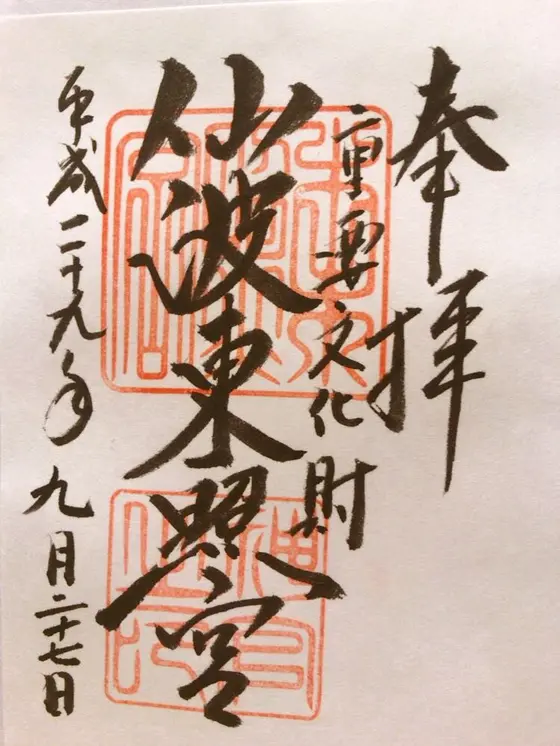 奉拝
重要文化財
仙波東照宮
平成二十九年九月二十七日